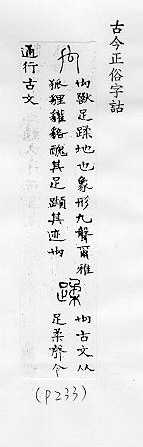 古今正俗字詁
禸
禸獸足蹂地也象形九聲爾雅
狐狸貛貉醜其足蹞其迹禸
蹂
禸古文从
足柔聲今
通行古文
(P233)